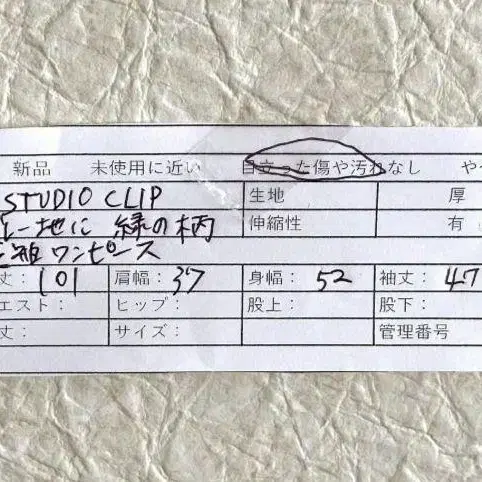 新品 未使用に近い 目立った傷や汚れなし や
STUDIO CLIP 生地 厚
レー地に 緑の柄 伸縮性 有
袖ワンピース
丈： 101 肩幅： 37 身幅： 52 袖丈： 47
エスト： ヒップ： 股上： 股下：
丈： サイズ： 管理番号